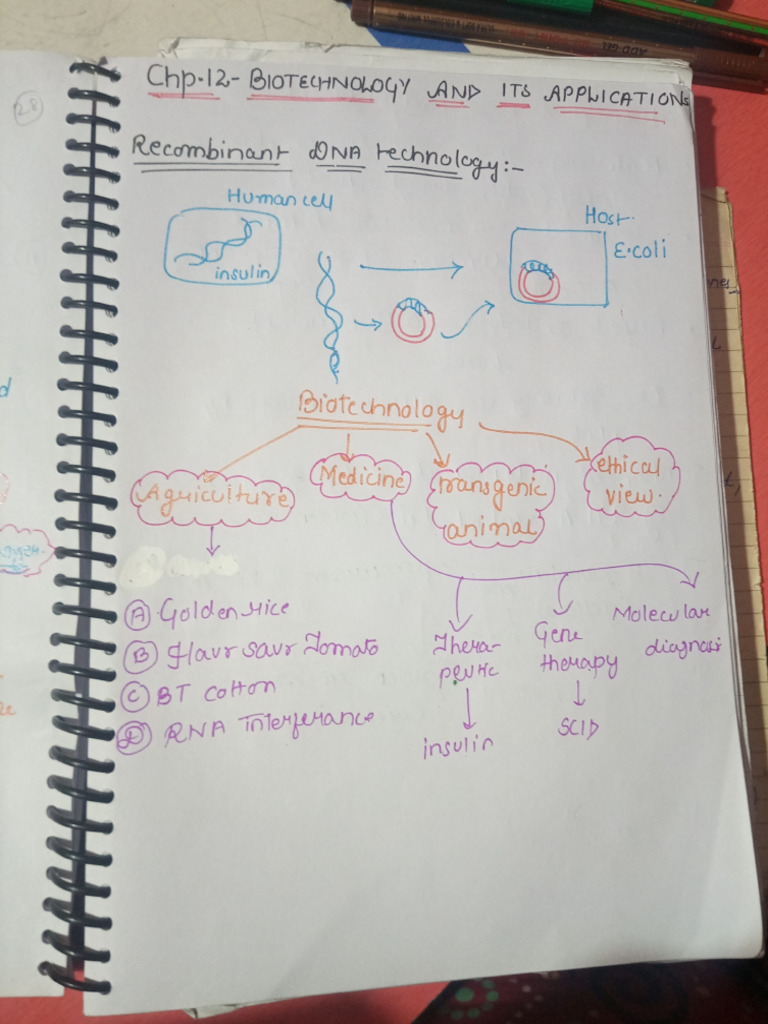 28
Chp.12- BIOTECHNOLOGY AND ITS APPLICATIONS
Recombinant DNA technology:-
Human cell
insulin
Host
E.coli
Biotechnology
Aguiculture
Medicine
Transgenic
animal
ethical
view.
A Golden rice
B Flavr savr Tomato
C BT cotton
D RNA Interferance
Thera-
peutic
insulin
Gene
therapy
SCID
Molecular
diagnosi